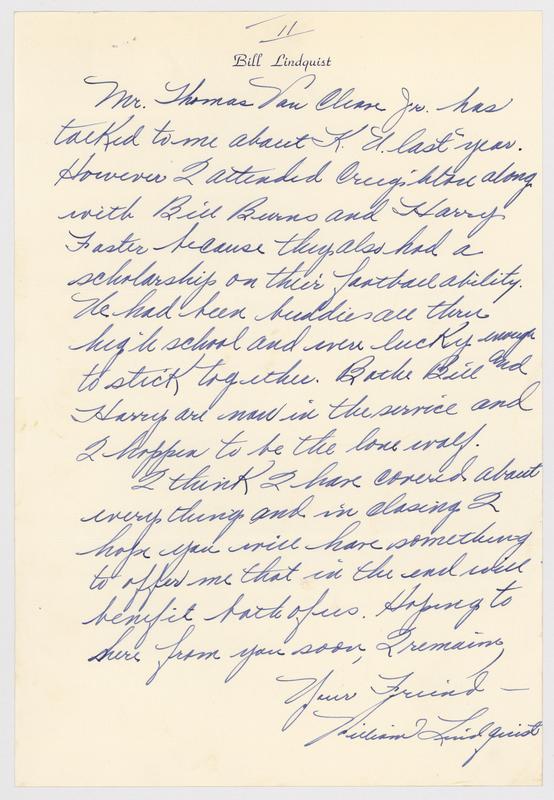 11
Bill Lindquist
Mr. Thomas Van Cleave Jr. has
talked to me about K. U. last year.
However I attended Creighton along
with Bill Burns and Harry
Foster because they also had a
scholarship on their football ability.
We had been buddies all thru
high school and were lucky enough
to stick together. Bothe Bill and
Harry are now in the service and
I happen to be the lone wolf.
I think I have covered about
everything and in closing I
hope you will have something
to offer me that in the end will
benefit both of us. Hoping to
here from you soon, I remain,
Your Friend —
William Lindquist